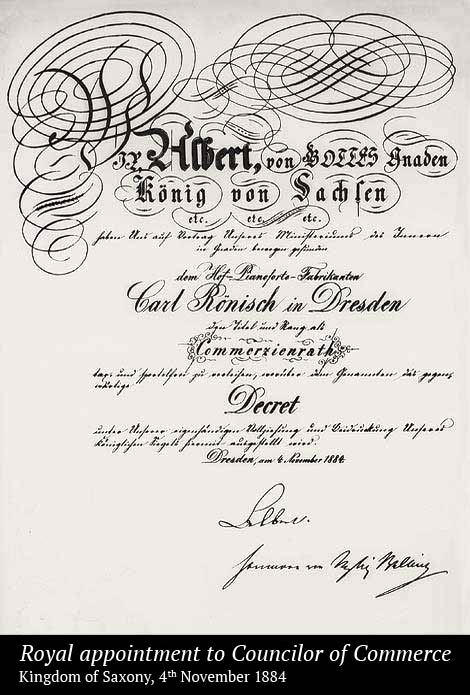 WIR Albert, von GOTTES Gnaden
König von Sachsen
etc. etc. etc.
haben Uns auf Vortrag Unseres Ministeriums des Innern
in Gnaden bewogen gefunden
dem Hof-Pianoforte-Fabrikanten
Carl Rönisch in Dresden
den Titel und Rang als
Commerzienrath
tax- und sportelfrei zu verleihen, worüber dem Genannten das gegen-
wärtige
Decret
unter Unserer eigenhändigen Vollziehung und Beidruckung Unseres
Königlichen Siegels hiermit ausgestellt wird.
Dresden, am 4. November 1884
Albert.
Hermann von
Royal appointment to Councilor of Commerce
Kingdom of Saxony, 4th November 1884